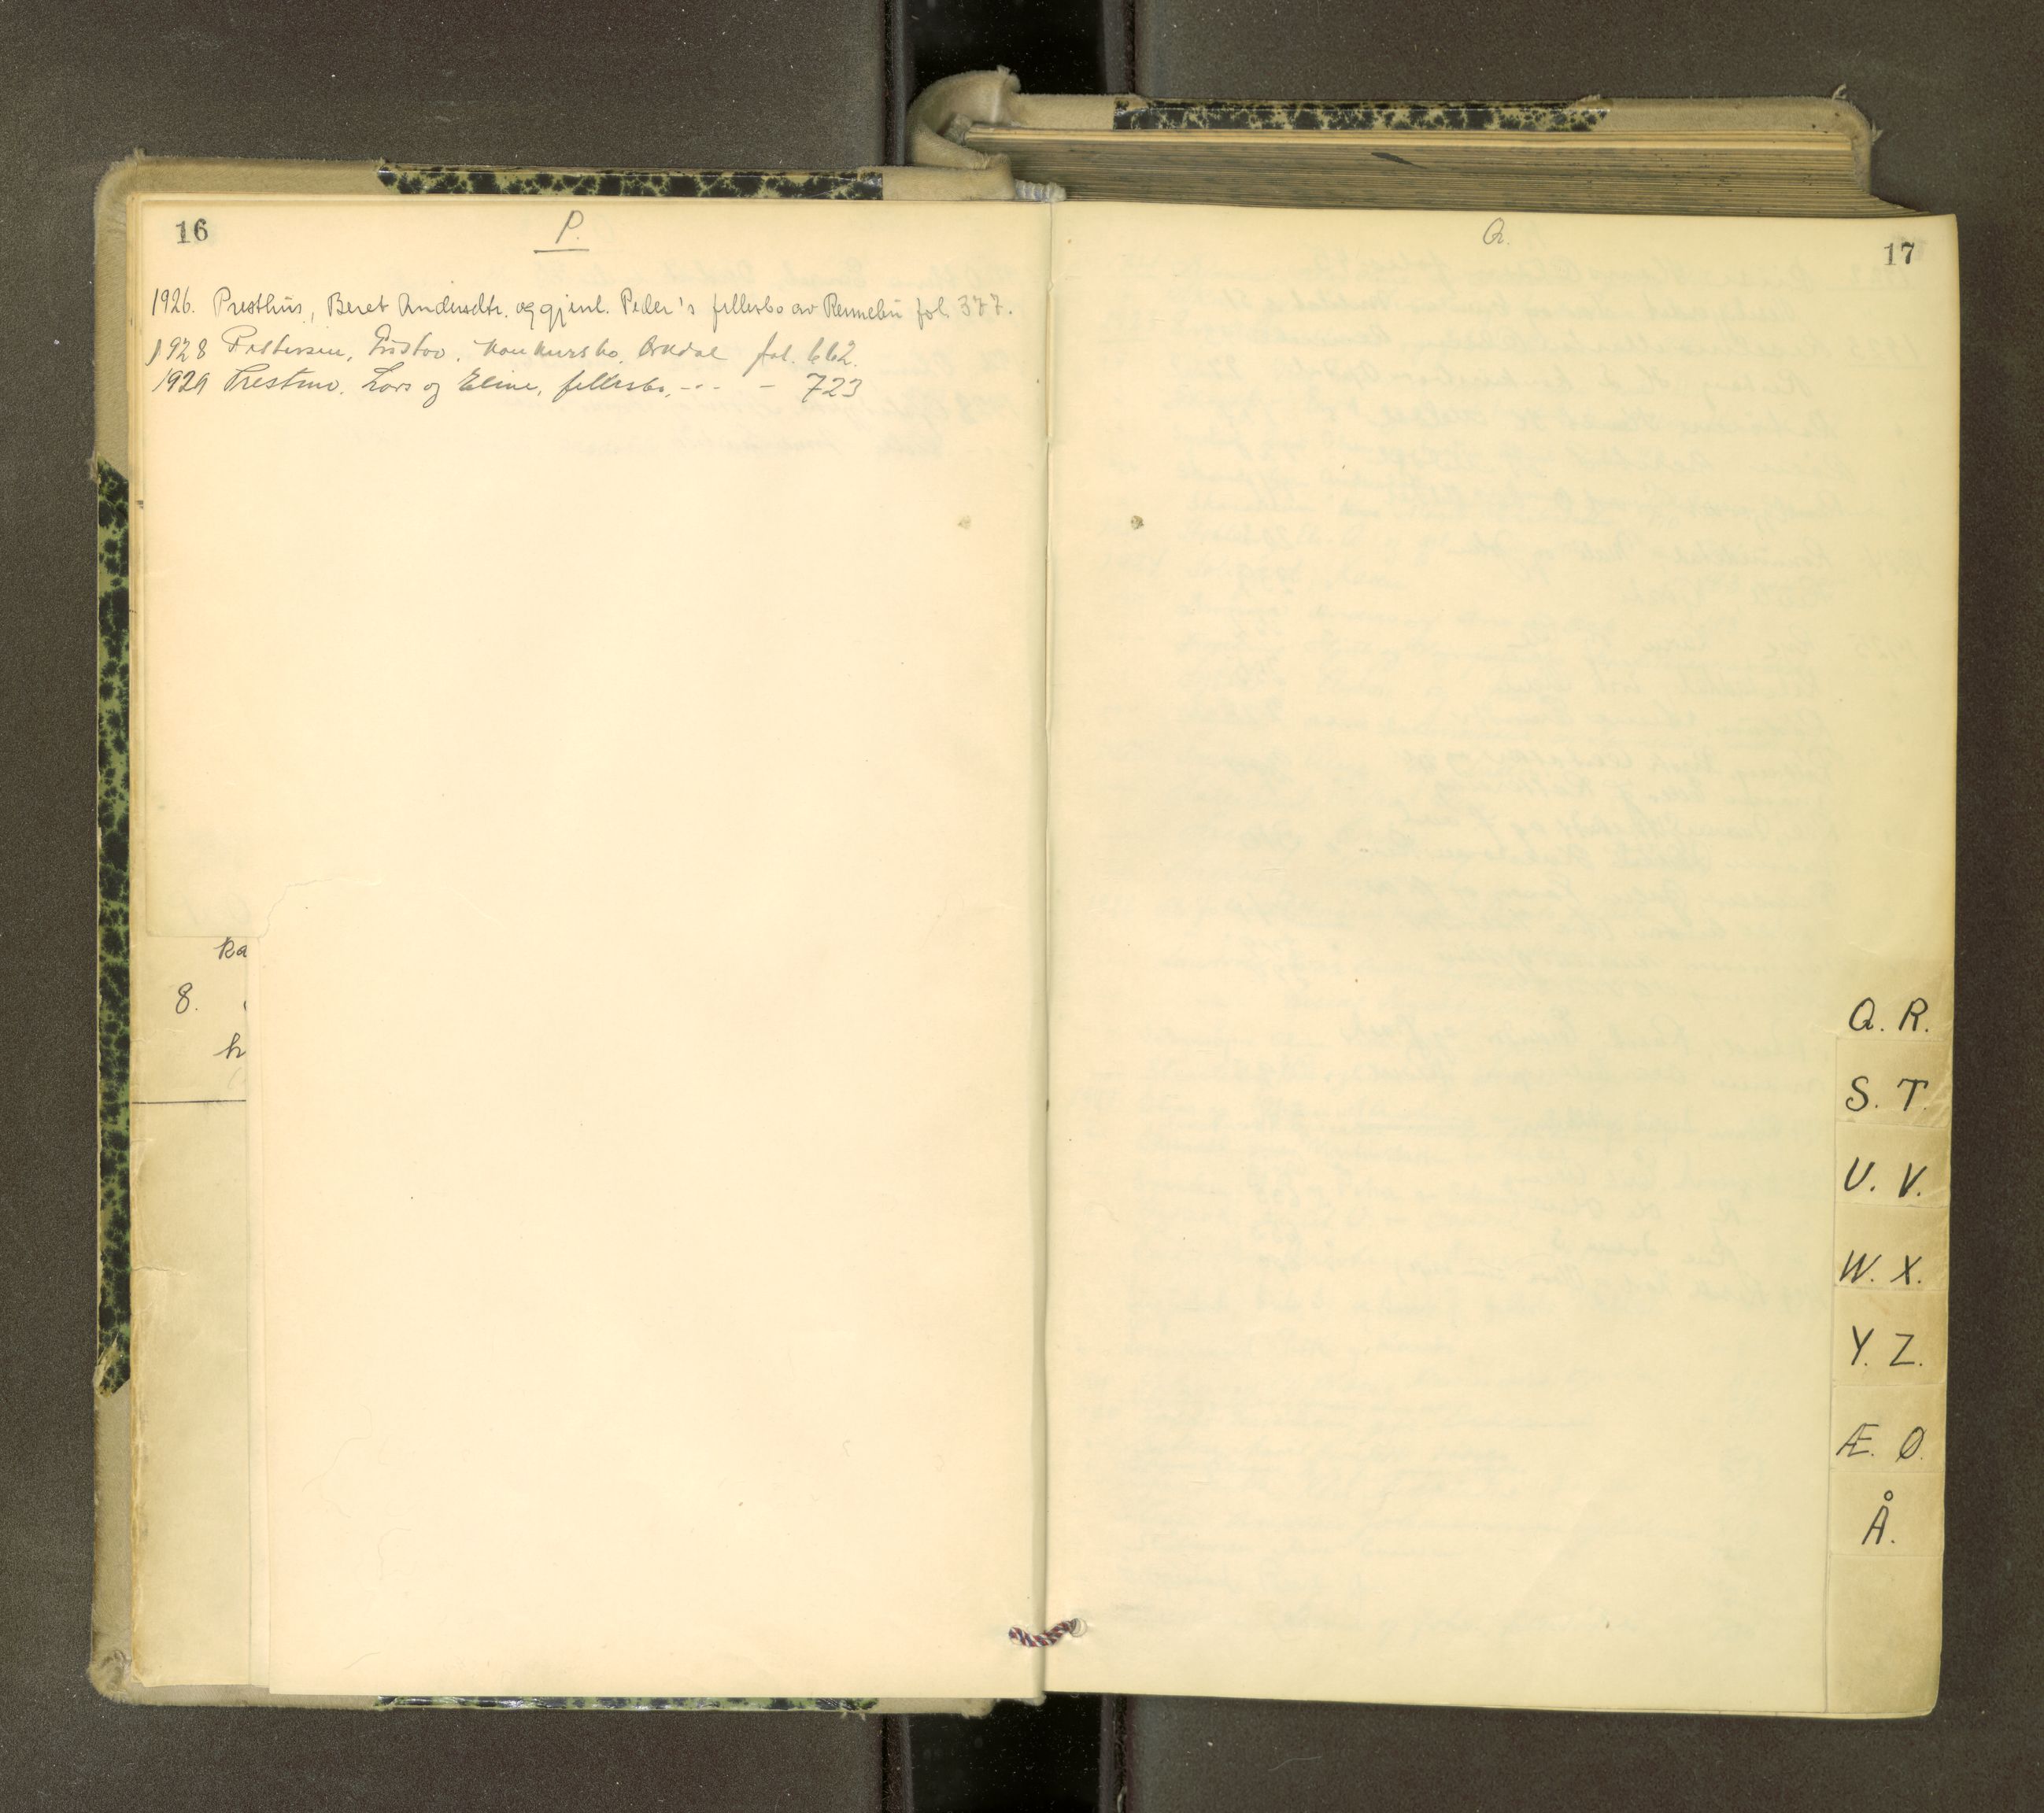 16
P.
1926. Presthus, Beret Andersdtr. og gjenl. Peder's fellesbo av Rennebu fol. 377.
1928 Pettersen, Gustav, Konkursbo, Orkdal fol. 662.
1929 Prestmo, Lars og Eline, fellesbo, - - - - 723
ka
8.
h
Q.
17
Q. R.
S. T.
U. V.
W. X.
Y. Z.
Æ. Ø.
Å.